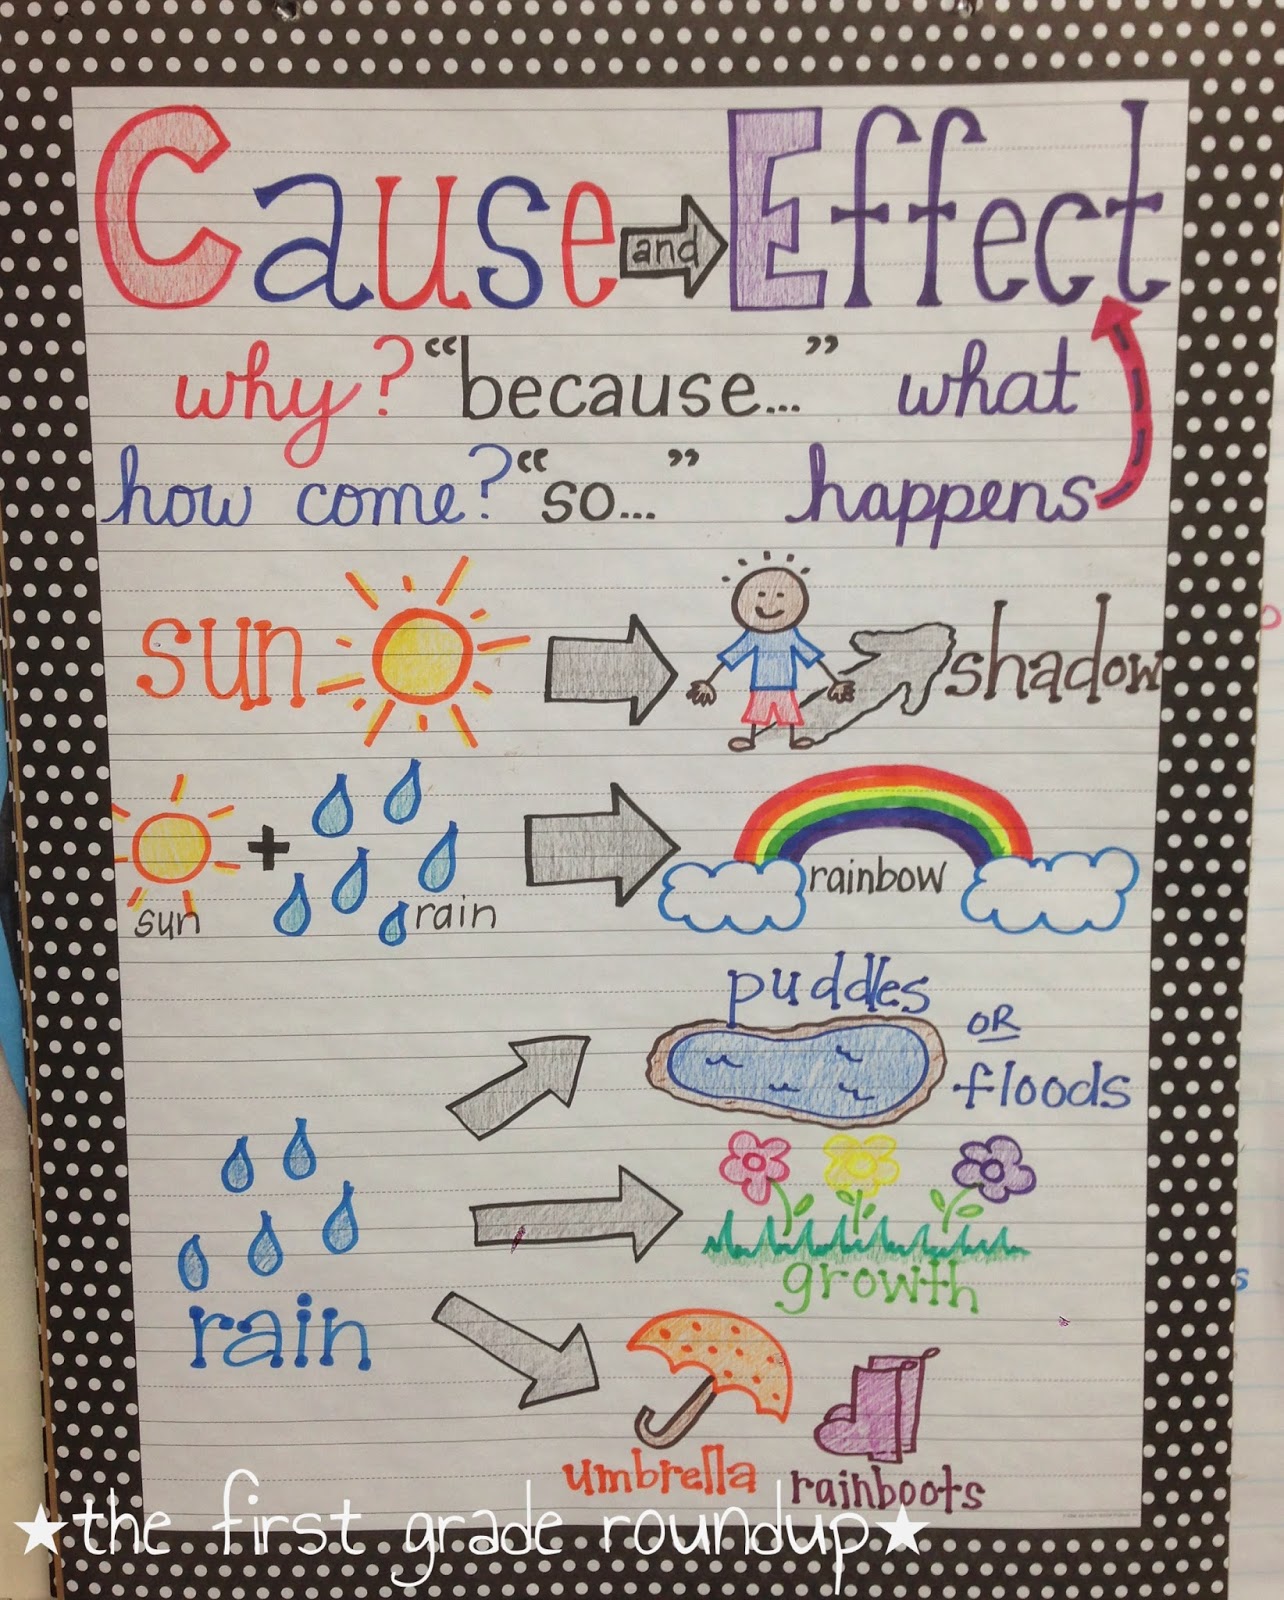 Cause and Effect
why? "because..." what
how come? "so..." happens
sun shadow
sun rain rainbow
puddles
OR
floods
growth
rain
umbrella rainboots
the first grade roundup